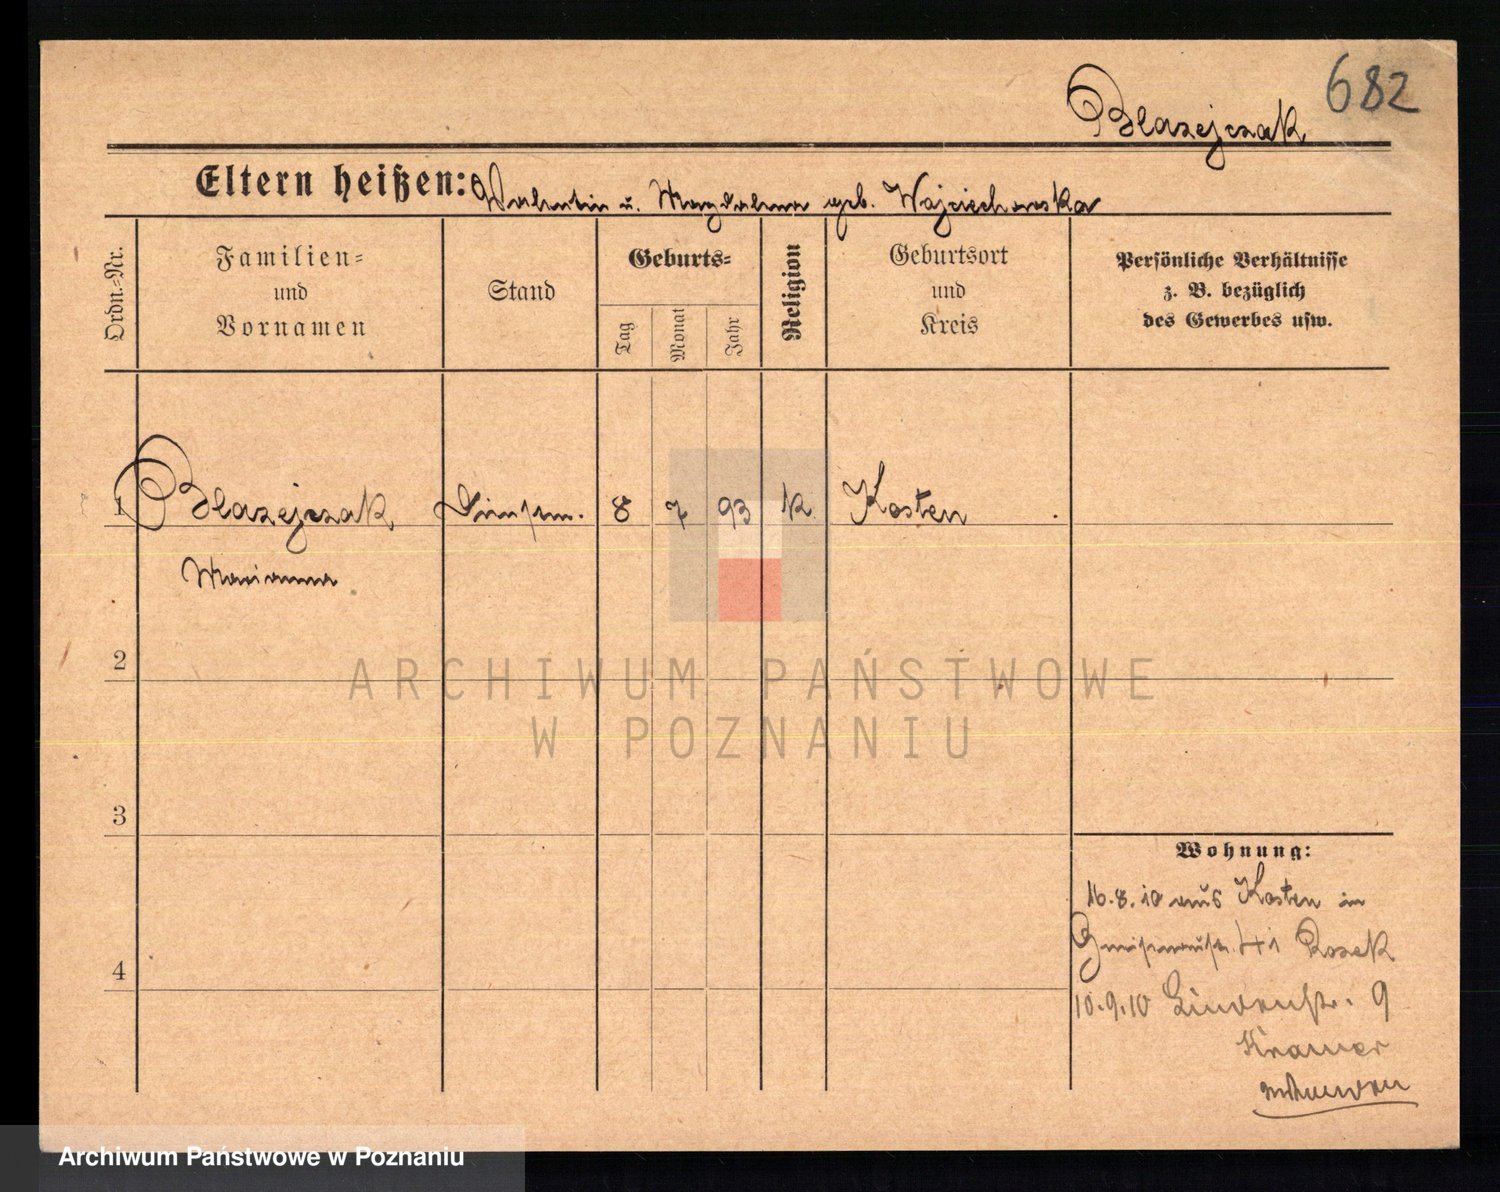 682
Blazejczak
Eltern heißen: Valentin u. Magdalena geb. Wojciechowska
Ordn.-Nr.
Familien-
und
Vornamen
Stand
Geburts-
Tag
Monat
Jahr
Religion
Geburtsort
und
Kreis
Persönliche Verhältnisse
z. B. bezüglich
des Gewerbes usw.
1 Blazejczak Dienstm. 8 7 93 k. Kosten
Marianna
2
ARCHIWUM PAŃSTWOWE
W POZNANIU
3
Wohnung:
16.8.10 aus Kosten in
41 Rozek
4
10.9.10 Lindenstr. 9
Kramer
Archiwum Państwowe w Poznaniu